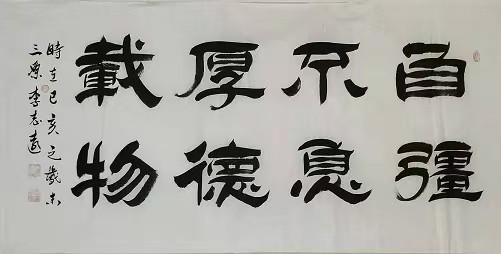 自彊
不息
厚德
載物
時在己亥之歲末
三原李志遠